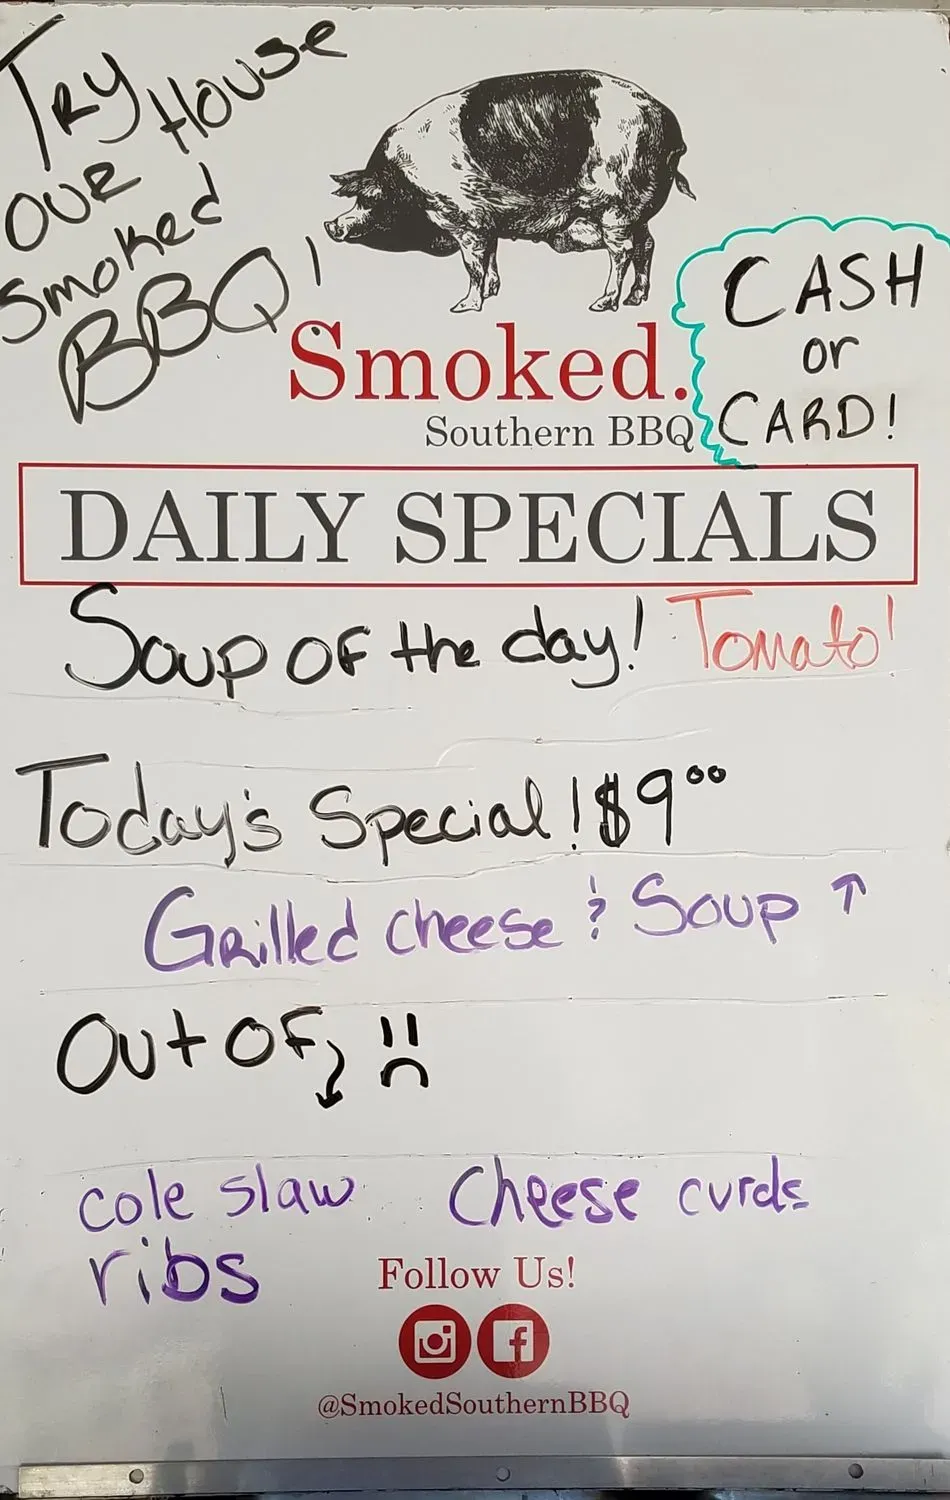 Try
our House
Smoked
BBQ!
Smoked.
Southern BBQ
CASH
or
CARD!
DAILY SPECIALS
Soup of the day! Tomato!
Today's Special! $9⁰⁰
Grilled cheese & Soup ↑
Out of
cole slaw Cheese curds
ribs
Follow Us!
@SmokedSouthernBBQ